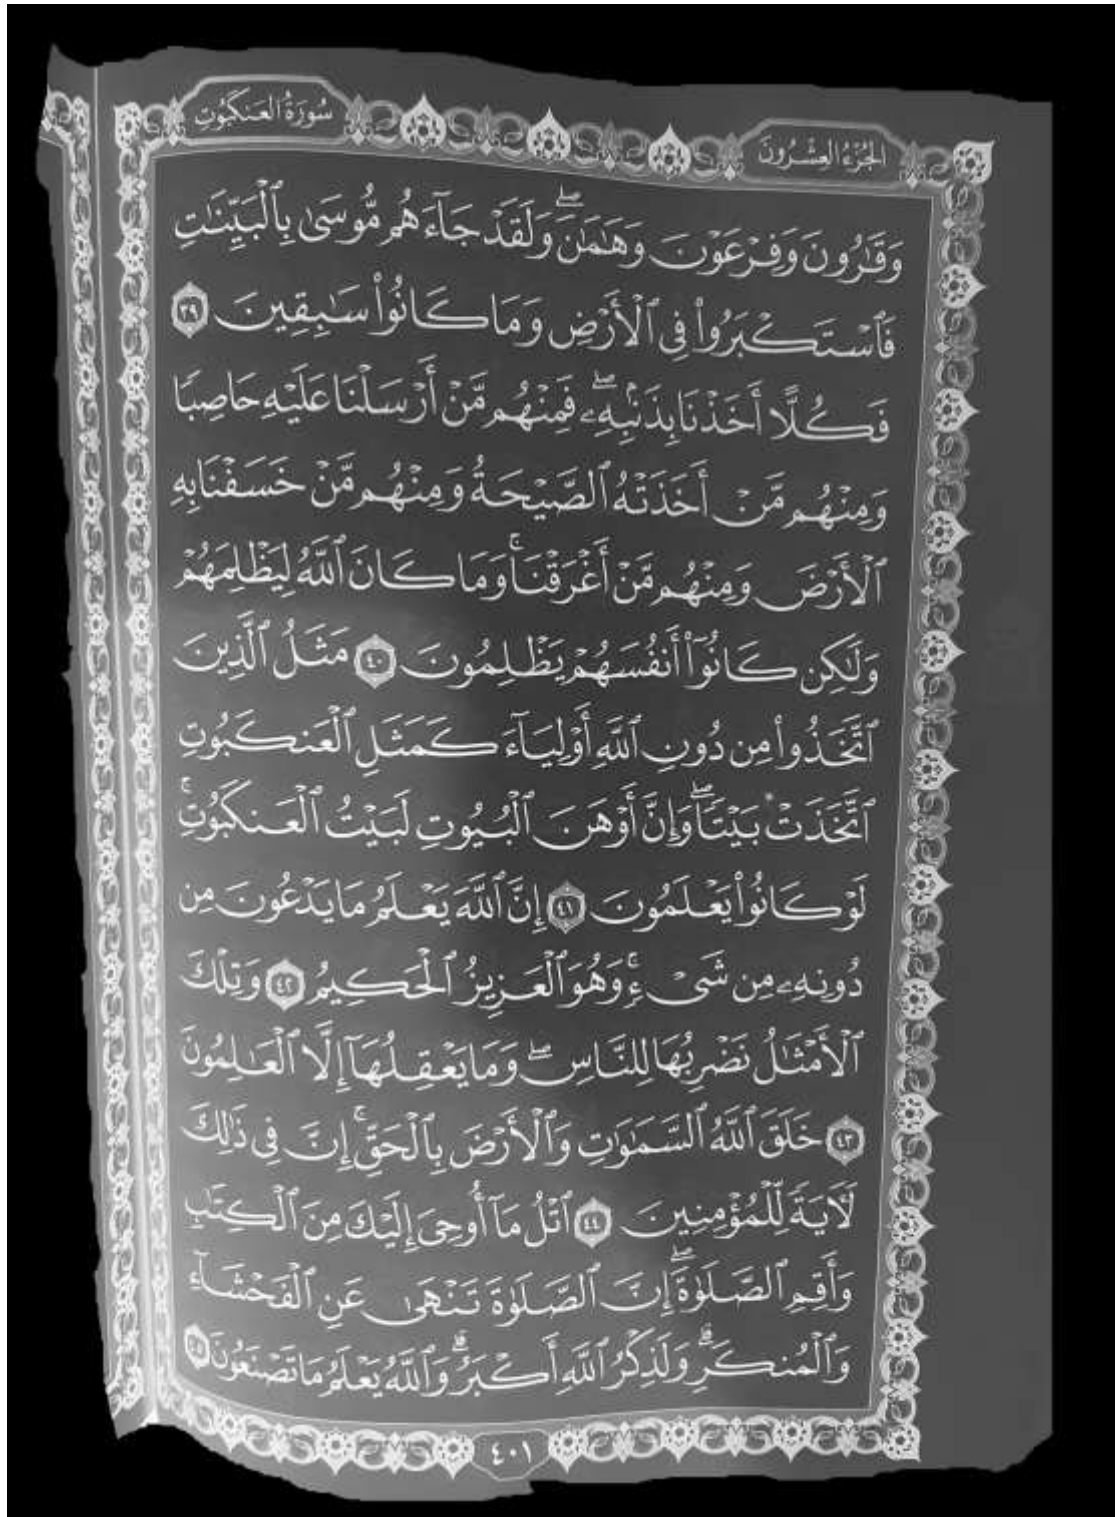 الجُزْءُ العِشْرُونَ
سُورَةُ العَنكَبُوتِ
وَقَٰرُونَ وَفِرْعَوْنَ وَهَٰمَٰنَۖ وَلَقَدْ جَآءَهُم مُّوسَىٰ بِٱلْبَيِّنَٰتِ
فَٱسْتَكْبَرُوا۟ فِى ٱلْأَرْضِ وَمَا كَانُوا۟ سَٰبِقِينَ ٣٩
فَكُلًّا أَخَذْنَا بِذَنۢبِهِۦۖ فَمِنْهُم مَّنْ أَرْسَلْنَا عَلَيْهِ حَاصِبًا
وَمِنْهُم مَّنْ أَخَذَتْهُ ٱلصَّيْحَةُ وَمِنْهُم مَّنْ خَسَفْنَا بِهِ
ٱلْأَرْضَ وَمِنْهُم مَّنْ أَغْرَقْنَاۚ وَمَا كَانَ ٱللَّهُ لِيَظْلِمَهُمْ
وَلَٰكِن كَانُوٓا۟ أَنفُسَهُمْ يَظْلِمُونَ ٤٠ مَثَلُ ٱلَّذِينَ
ٱتَّخَذُوا۟ مِن دُونِ ٱللَّهِ أَوْلِيَآءَ كَمَثَلِ ٱلْعَنكَبُوتِ
ٱتَّخَذَتْ بَيْتًاۖ وَإِنَّ أَوْهَنَ ٱلْبُيُوتِ لَبَيْتُ ٱلْعَنكَبُوتِۚ
لَوْ كَانُوا۟ يَعْلَمُونَ ٤١ إِنَّ ٱللَّهَ يَعْلَمُ مَا يَدْعُونَ مِن
دُونِهِۦ مِن شَىْءٍۚ وَهُوَ ٱلْعَزِيزُ ٱلْحَكِيمُ ٤٢ وَتِلْكَ
ٱلْأَمْثَٰلُ نَضْرِبُهَا لِلنَّاسِۖ وَمَا يَعْقِلُهَآ إِلَّا ٱلْعَٰلِمُونَ
٤٣ خَلَقَ ٱللَّهُ ٱلسَّمَٰوَٰتِ وَٱلْأَرْضَ بِٱلْحَقِّۚ إِنَّ فِى ذَٰلِكَ
لَـَٔايَةً لِّلْمُؤْمِنِينَ ٤٤ ٱتْلُ مَآ أُوحِىَ إِلَيْكَ مِنَ ٱلْكِتَٰبِ
وَأَقِمِ ٱلصَّلَوٰةَۖ إِنَّ ٱلصَّلَوٰةَ تَنْهَىٰ عَنِ ٱلْفَحْشَآءِ
وَٱلْمُنكَرِۗ وَلَذِكْرُ ٱللَّهِ أَكْبَرُۗ وَٱللَّهُ يَعْلَمُ مَا تَصْنَعُونَ ٤٥
٤٠١